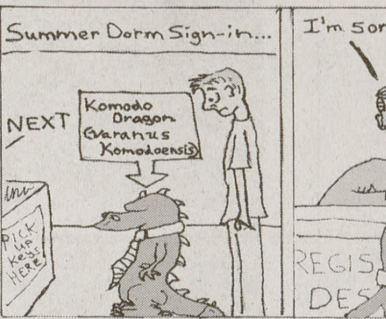 Summer Dorm Sign-in...
NEXT
Komodo
Dragon
(varanus
Komodoensis)
PICK
up
Keys
HERE
I'm sor
REGIS
DES